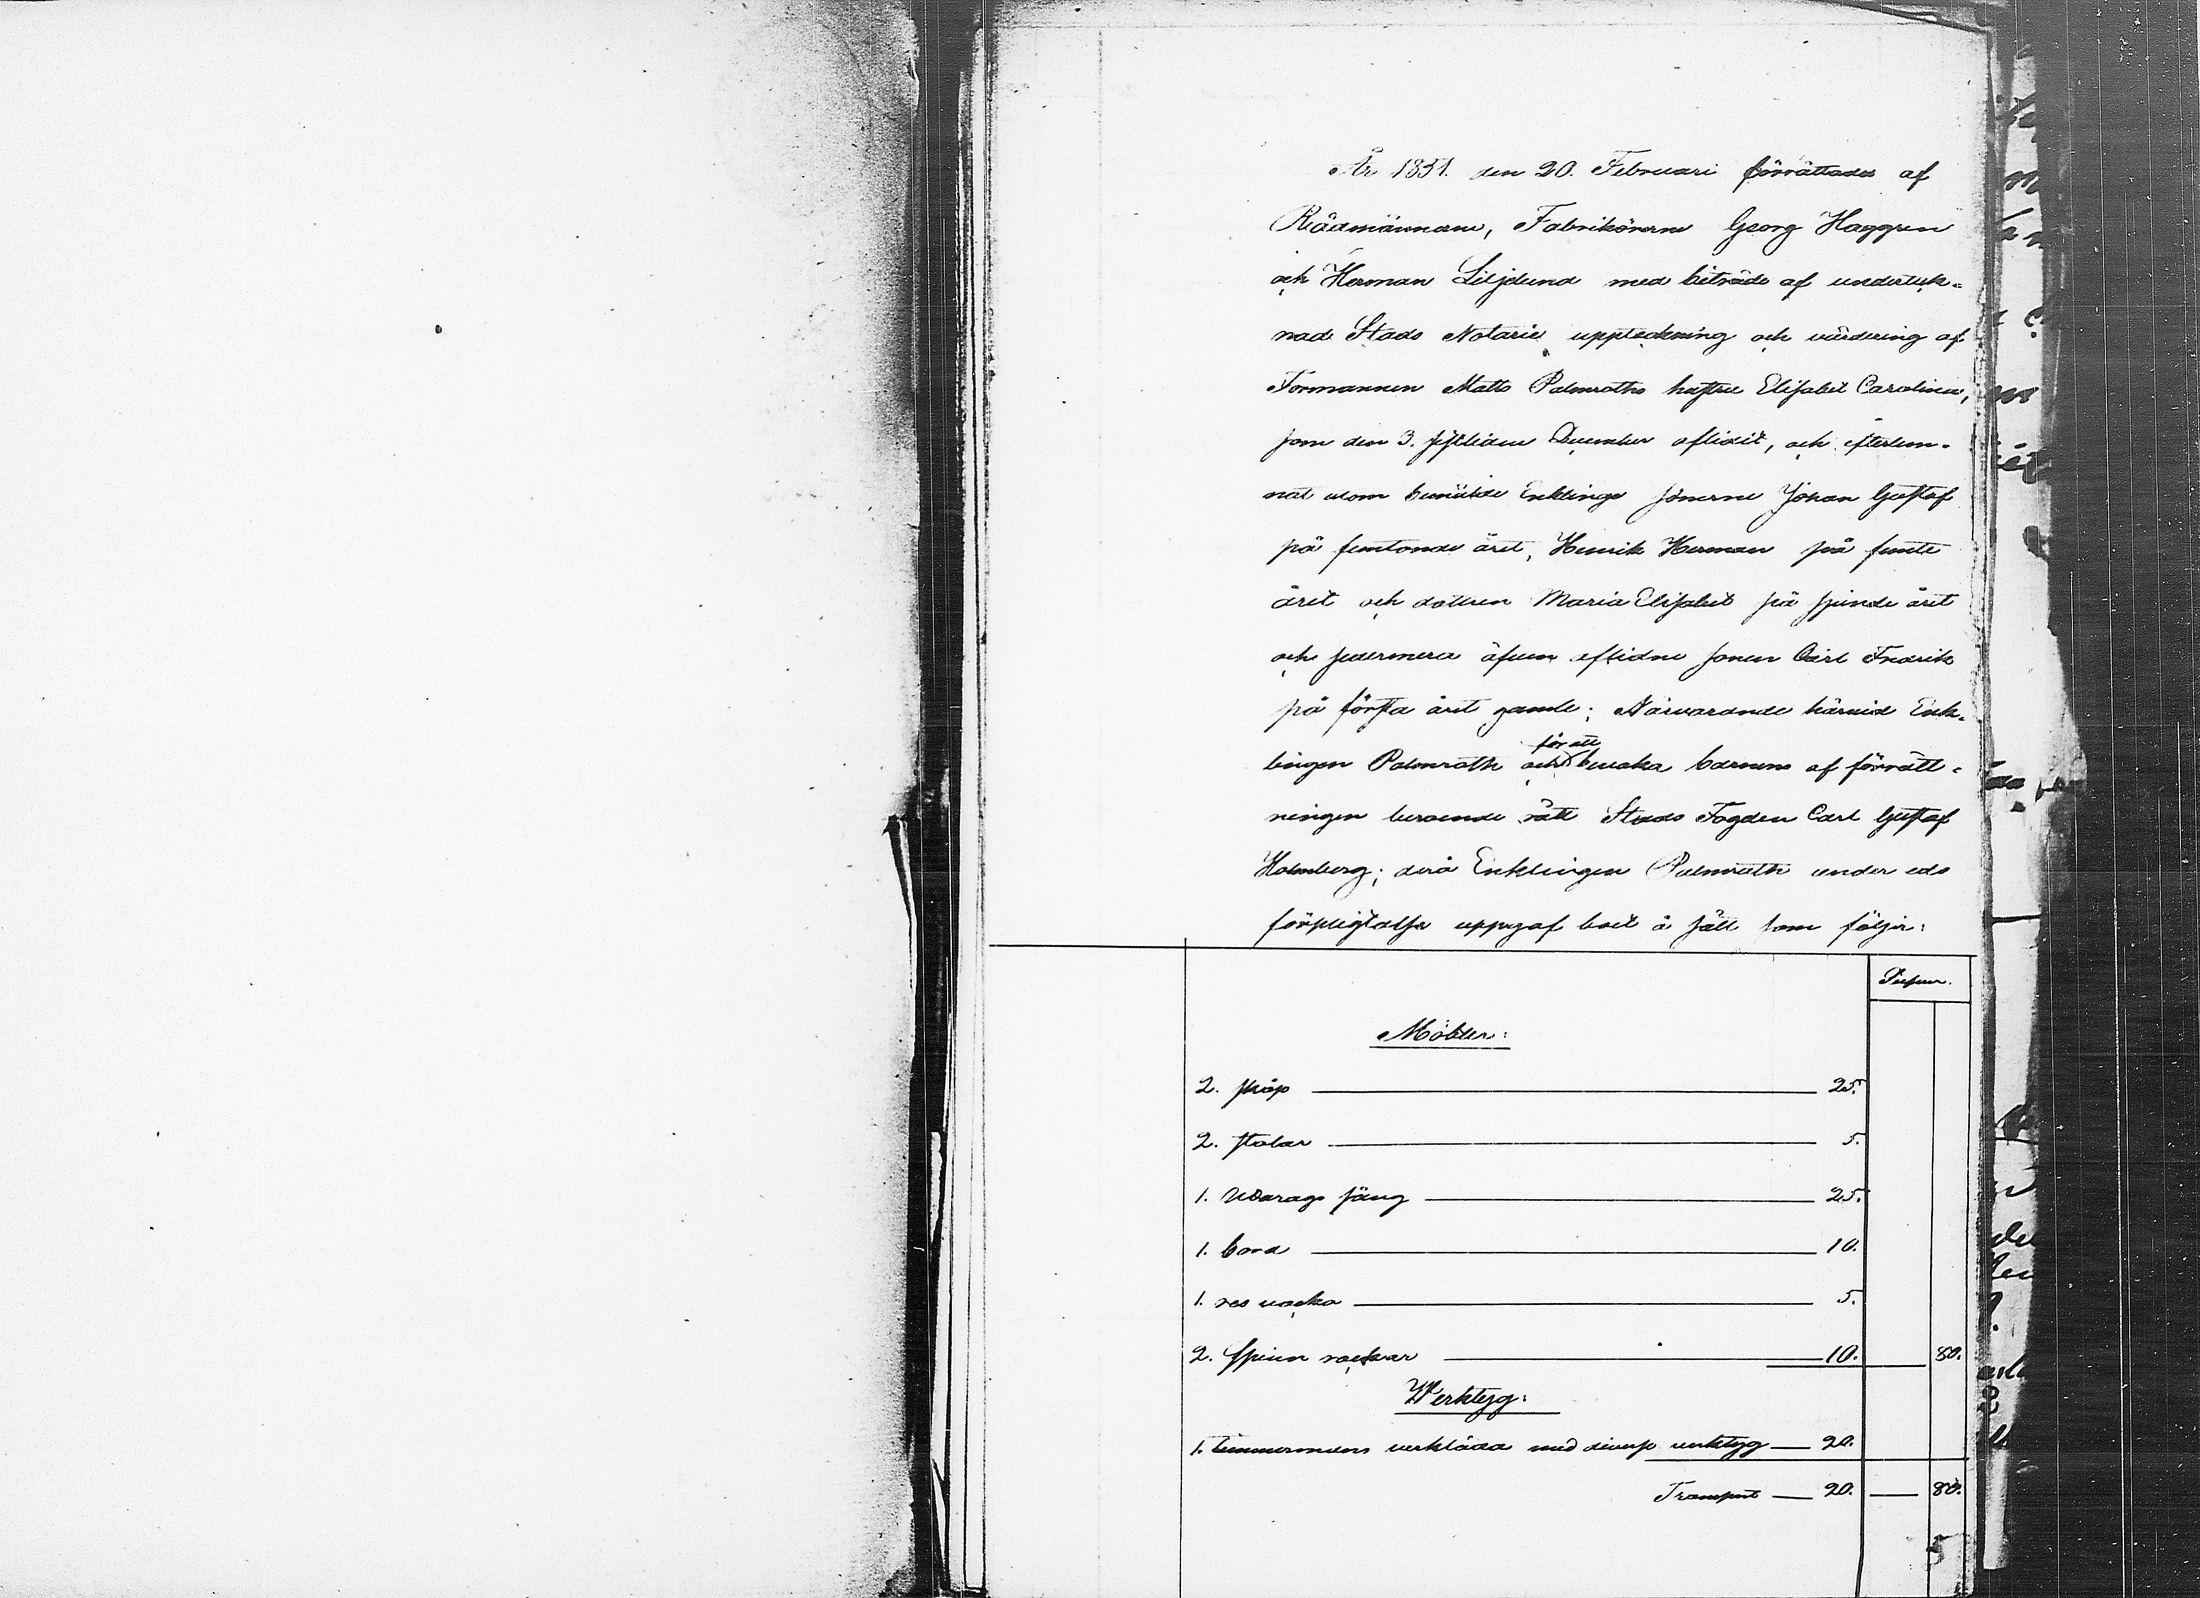 År 1851. den 20. Februari förrättades af
Rådmännerne, Fabrikörerne Georg Haggren
och Herman Liljelund med biträde af underteck-
nad Stads Notarie uppteckning och värdering af
Formannen Matts Palmroths hustru Elisabet Carolina,
som den 3. sistliden December aflidit, och efterlem-
nat utom bemälde Enkling sönerne Johan Gustaf
på femtonde året, Henrik Herman på femte
året och dottren Maria Elisabet på sjunde året
och sedermera äfven aflidne sonen Carl Fredrik
på första året gamle; Närvarande härvid Enk-
lingen Palmroth och för att bevaka barnens af förrätt-
ningen beroende rätt Stads Fogden Carl Gustaf
Holmberg; derå Enklingen Palmroth under eds
förpligtelse uppgaf boet å sätt som följer:
Möbler:
2. skåp 25.
2. stolar 5.
1. Utdrags säng 25.
1. bord 10.
1. res vacka 5.
2. spinn rockar 10. 80.
Werktyg:
1. timmermans verklåda med diverse verktyg 20.
Transport 20. 80.